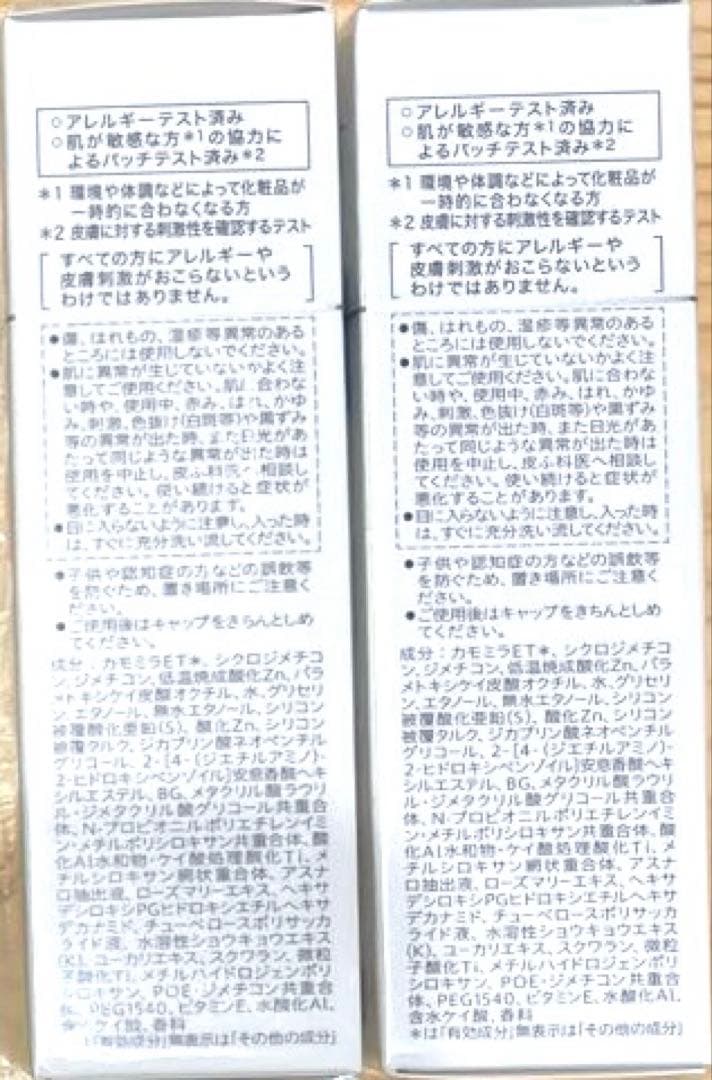 ○アレルギーテスト済み
○肌が敏感な方*1の協力に
よるパッチテスト済み*2
*1 環境や体調などによって化粧品が
一時的に合わなくなる方
*2 皮膚に対する刺激性を確認するテスト
すべての方にアレルギーや
皮膚刺激がおこらないという
わけではありません。
●傷、はれもの、湿疹等異常のある
ところには使用しないでください。
●肌に異常が生じていないかよく注
意してご使用ください。肌に合わな
い時や、使用中、赤み、はれ、かゆ
み、刺激、色抜け(白斑等)や黒ずみ
等の異常が出た時、また日光があ
たって同じような異常が出た時は
使用を中止し、皮ふ科医へ相談し
てください。使い続けると症状が
悪化することがあります。
●目に入らないように注意し、入った時
は、すぐに充分洗い流してください。
●子供や認知症の方などの誤飲等
を防ぐため、置き場所にご注意く
ださい。
●ご使用後はキャップをきちんとしめ
てください。
成分:カモミラET*、シクロジメチコ
ン、ジメチコン、低温焼成酸化Zn、パラ
メトキシケイ皮酸オクチル、水、グリセリ
ン、エタノール、無水エタノール、シリコン
被覆酸化亜鉛(S)、酸化Zn、シリコン
被覆タルク、ジカプリン酸ネオペンチル
グリコール、2-[4-(ジエチルアミノ)-
2-ヒドロキシベンゾイル]安息香酸ヘキ
シルエステル、BG、メタクリル酸ラウリ
ル・ジメタクリル酸グリコール共重合
体、N-プロピオニルポリエチレンイミ
ン・メチルポリシロキサン共重合体、酸
化Al水和物・ケイ酸処理酸化Ti、メ
チルシロキサン網状重合体、アスナ
ロ抽出液、ローズマリーエキス、ヘキサ
デシロキシPGヒドロキシエチルヘキサ
デカナミド、チューベロースポリサッカ
ライド液、水溶性ショウキョウエキス
(K)、ユーカリエキス、スクワラン、微粒
子酸化Ti、メチルハイドロジェンポリ
シロキサン、POE・ジメチコン共重合
体、PEG1540、ビタミンE、水酸化Al、
含水ケイ酸、香料
「有効成分」無表示は「その他の成分」
○アレルギーテスト済み
○肌が敏感な方*1の協力に
よるパッチテスト済み*2
*1 環境や体調などによって化粧品が
一時的に合わなくなる方
*2 皮膚に対する刺激性を確認するテスト
すべての方にアレルギーや
皮膚刺激がおこらないという
わけではありません。
●傷、はれもの、湿疹等異常のある
ところには使用しないでください。
●肌に異常が生じていないかよく注
意してご使用ください。肌に合わな
い時や、使用中、赤み、はれ、かゆ
み、刺激、色抜け(白斑等)や黒ずみ
等の異常が出た時、また日光があ
たって同じような異常が出た時は
使用を中止し、皮ふ科医へ相談し
てください。使い続けると症状が
悪化することがあります。
●目に入らないように注意し、入った時
は、すぐに充分洗い流してください。
●子供や認知症の方などの誤飲等
を防ぐため、置き場所にご注意く
ださい。
●ご使用後はキャップをきちんとしめ
てください。
成分:カモミラET*、シクロジメチコ
ン、ジメチコン、低温焼成酸化Zn、パラ
メトキシケイ皮酸オクチル、水、グリセリ
ン、エタノール、無水エタノール、シリコン
被覆酸化亜鉛(S)、酸化Zn、シリコン
被覆タルク、ジカプリン酸ネオペンチル
グリコール、2-[4-(ジエチルアミノ)-
2-ヒドロキシベンゾイル]安息香酸ヘキ
シルエステル、BG、メタクリル酸ラウリ
ル・ジメタクリル酸グリコール共重合
体、N-プロピオニルポリエチレンイミ
ン・メチルポリシロキサン共重合体、酸
化Al水和物・ケイ酸処理酸化Ti、メ
チルシロキサン網状重合体、アスナ
ロ抽出液、ローズマリーエキス、ヘキサ
デシロキシPGヒドロキシエチルヘキサ
デカナミド、チューベロースポリサッカ
ライド液、水溶性ショウキョウエキス
(K)、ユーカリエキス、スクワラン、微粒
子酸化Ti、メチルハイドロジェンポリ
シロキサン、POE・ジメチコン共重合
体、PEG1540、ビタミンE、水酸化Al、
含水ケイ酸、香料
*は「有効成分」無表示は「その他の成分」